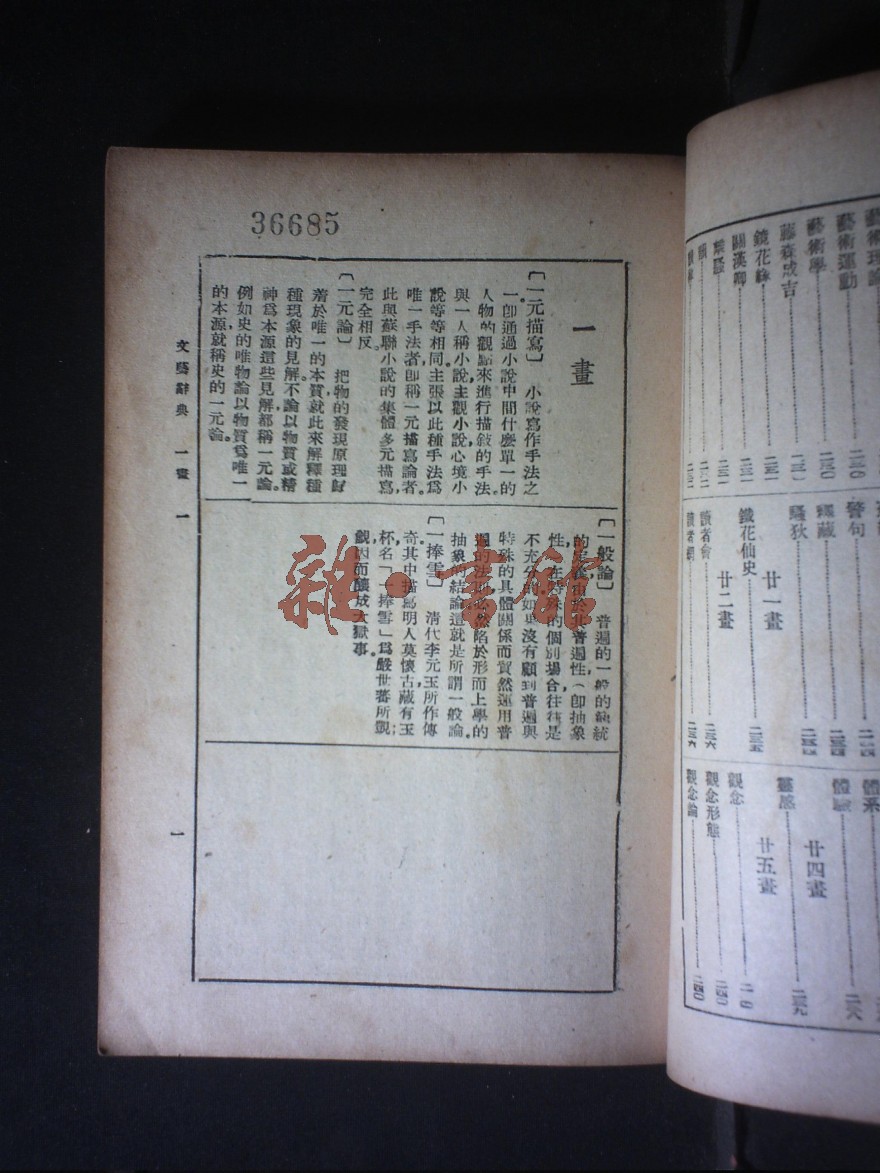 36685
一畫
〔一元描寫〕 小說寫作手法之
一卽通過小說中間什麼單一的
人物的觀點來進行描敍的手法。
與一人稱小說，主觀小說，心境小
說等等相同主張以此種手法爲
唯一手法者卽稱一元描寫論者。
此與蘇聯小說的集體多元描寫，
完全相反。
〔一元論〕 把物的發現原理歸
着於唯一的本質，就此來解釋種
種現象的見解。不論以物質或精
神爲本源這些見解都稱一元論。
例如史的唯物論以物質爲唯一
的本源就稱史的一元論。
〔一般論〕 普遍的一般的總統
的定義由於其普遍性（卽抽象
性）在特殊的個別場合往往是
不充分的如果沒有顧到普遍與
特殊的具體關係而貿然運用普
遍的法則必然陷於形而上學的
抽象的結論這就是所謂一般論。
〔一捧雪〕 清代李元玉所作傳
奇其中描寫明人莫懷古藏有玉
杯名「一捧雪」爲嚴世蕃所覬
覦因而釀成大獄事。
文藝辭典 一畫 一
一
雜·書館
藝術理論
藝術運動
二三〇
藝術學
二三〇
藤森成吉
二三一
鏡花緣
二三一
關漢卿
二三一
警句
騷狄
二三四
廿一畫
鐵花仙史
二三五
廿二畫
讀者會
二三六
讀者網
二三六
體系
體驗
二三八
廿四畫
靈感
二三九
廿五畫
觀念
觀念形態
二四〇
觀念論
二四〇